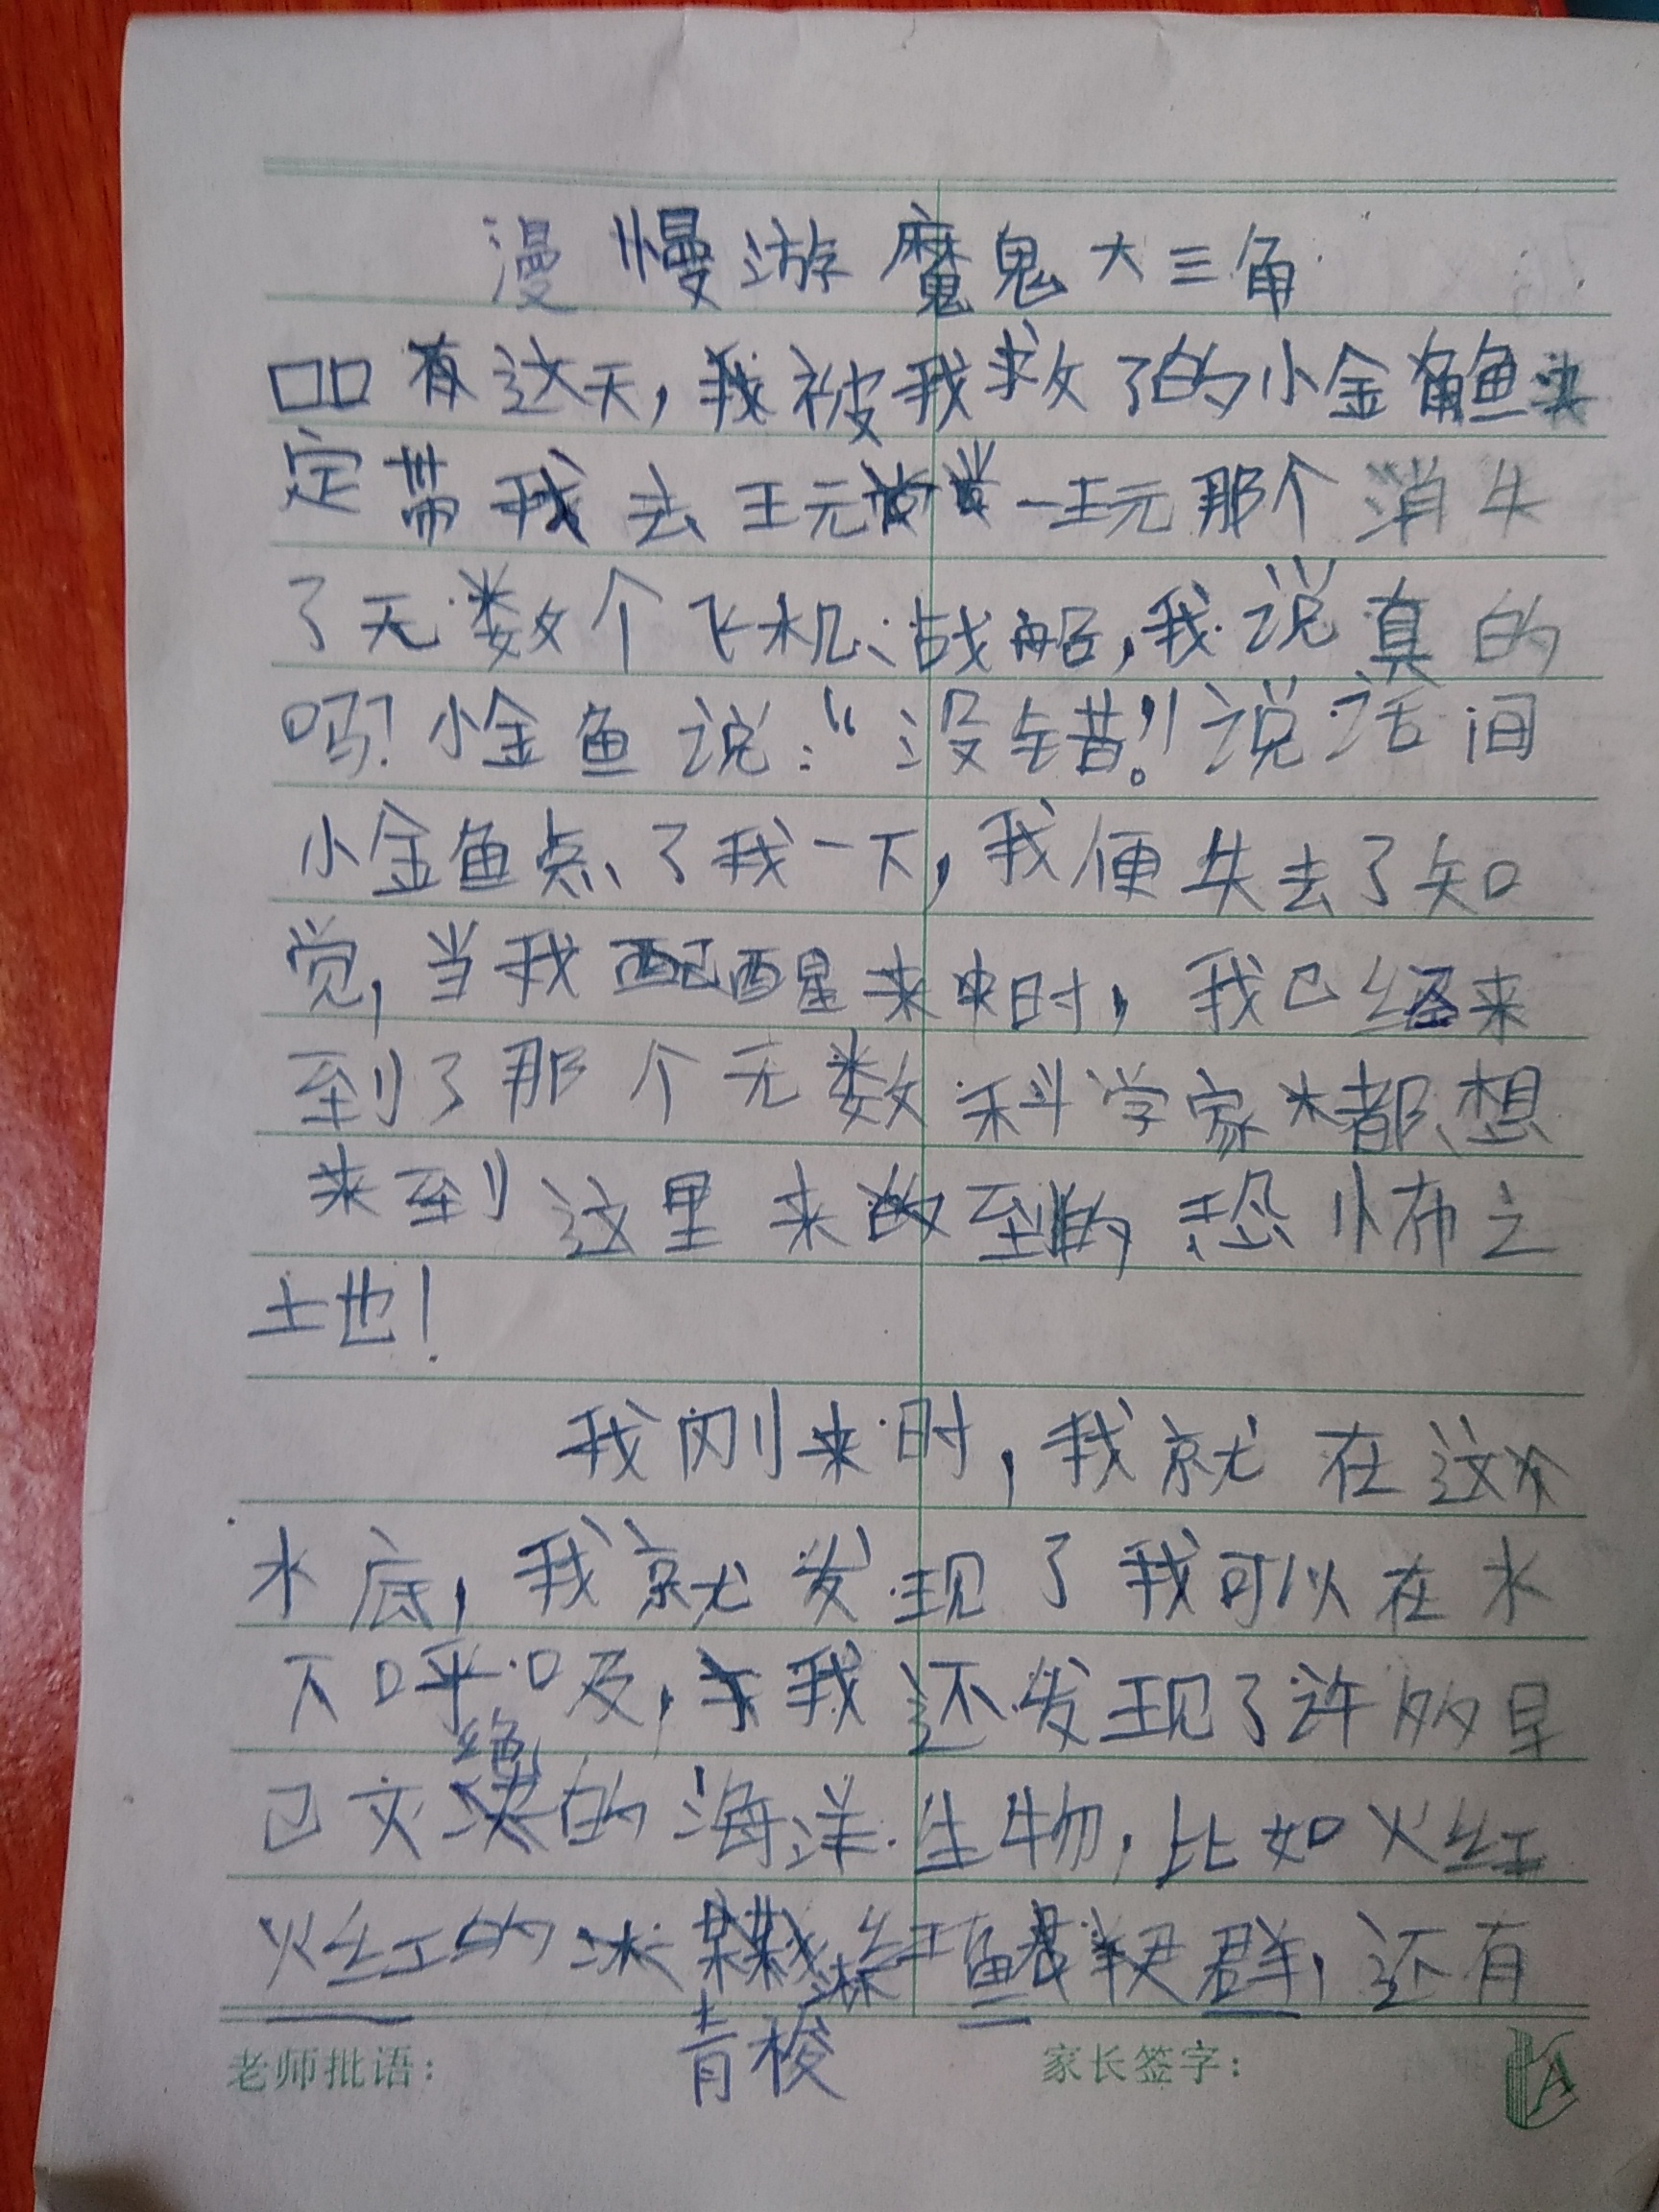 漫慢游魔鬼大三角
口口有这天,我被我救了的小金鱼决
定带我去玩一玩那个消失
了无数个飞机、战船,我说真的
吗?小金鱼说:“没错。”说话间
小金鱼点了我一下,我便失去了知
觉,当我配醒来时,我已经来
到了那个无数科学家都想
来到这里来到的恐怖之
土也!
我刚来时,我就在这个
水底,我就发现了我可以在水
下呼吸,我还发现了许多早
已灭绝的海洋生物,比如火红
火红的冰 红鱼群群,还有
青梭
老师批语: 家长签字: